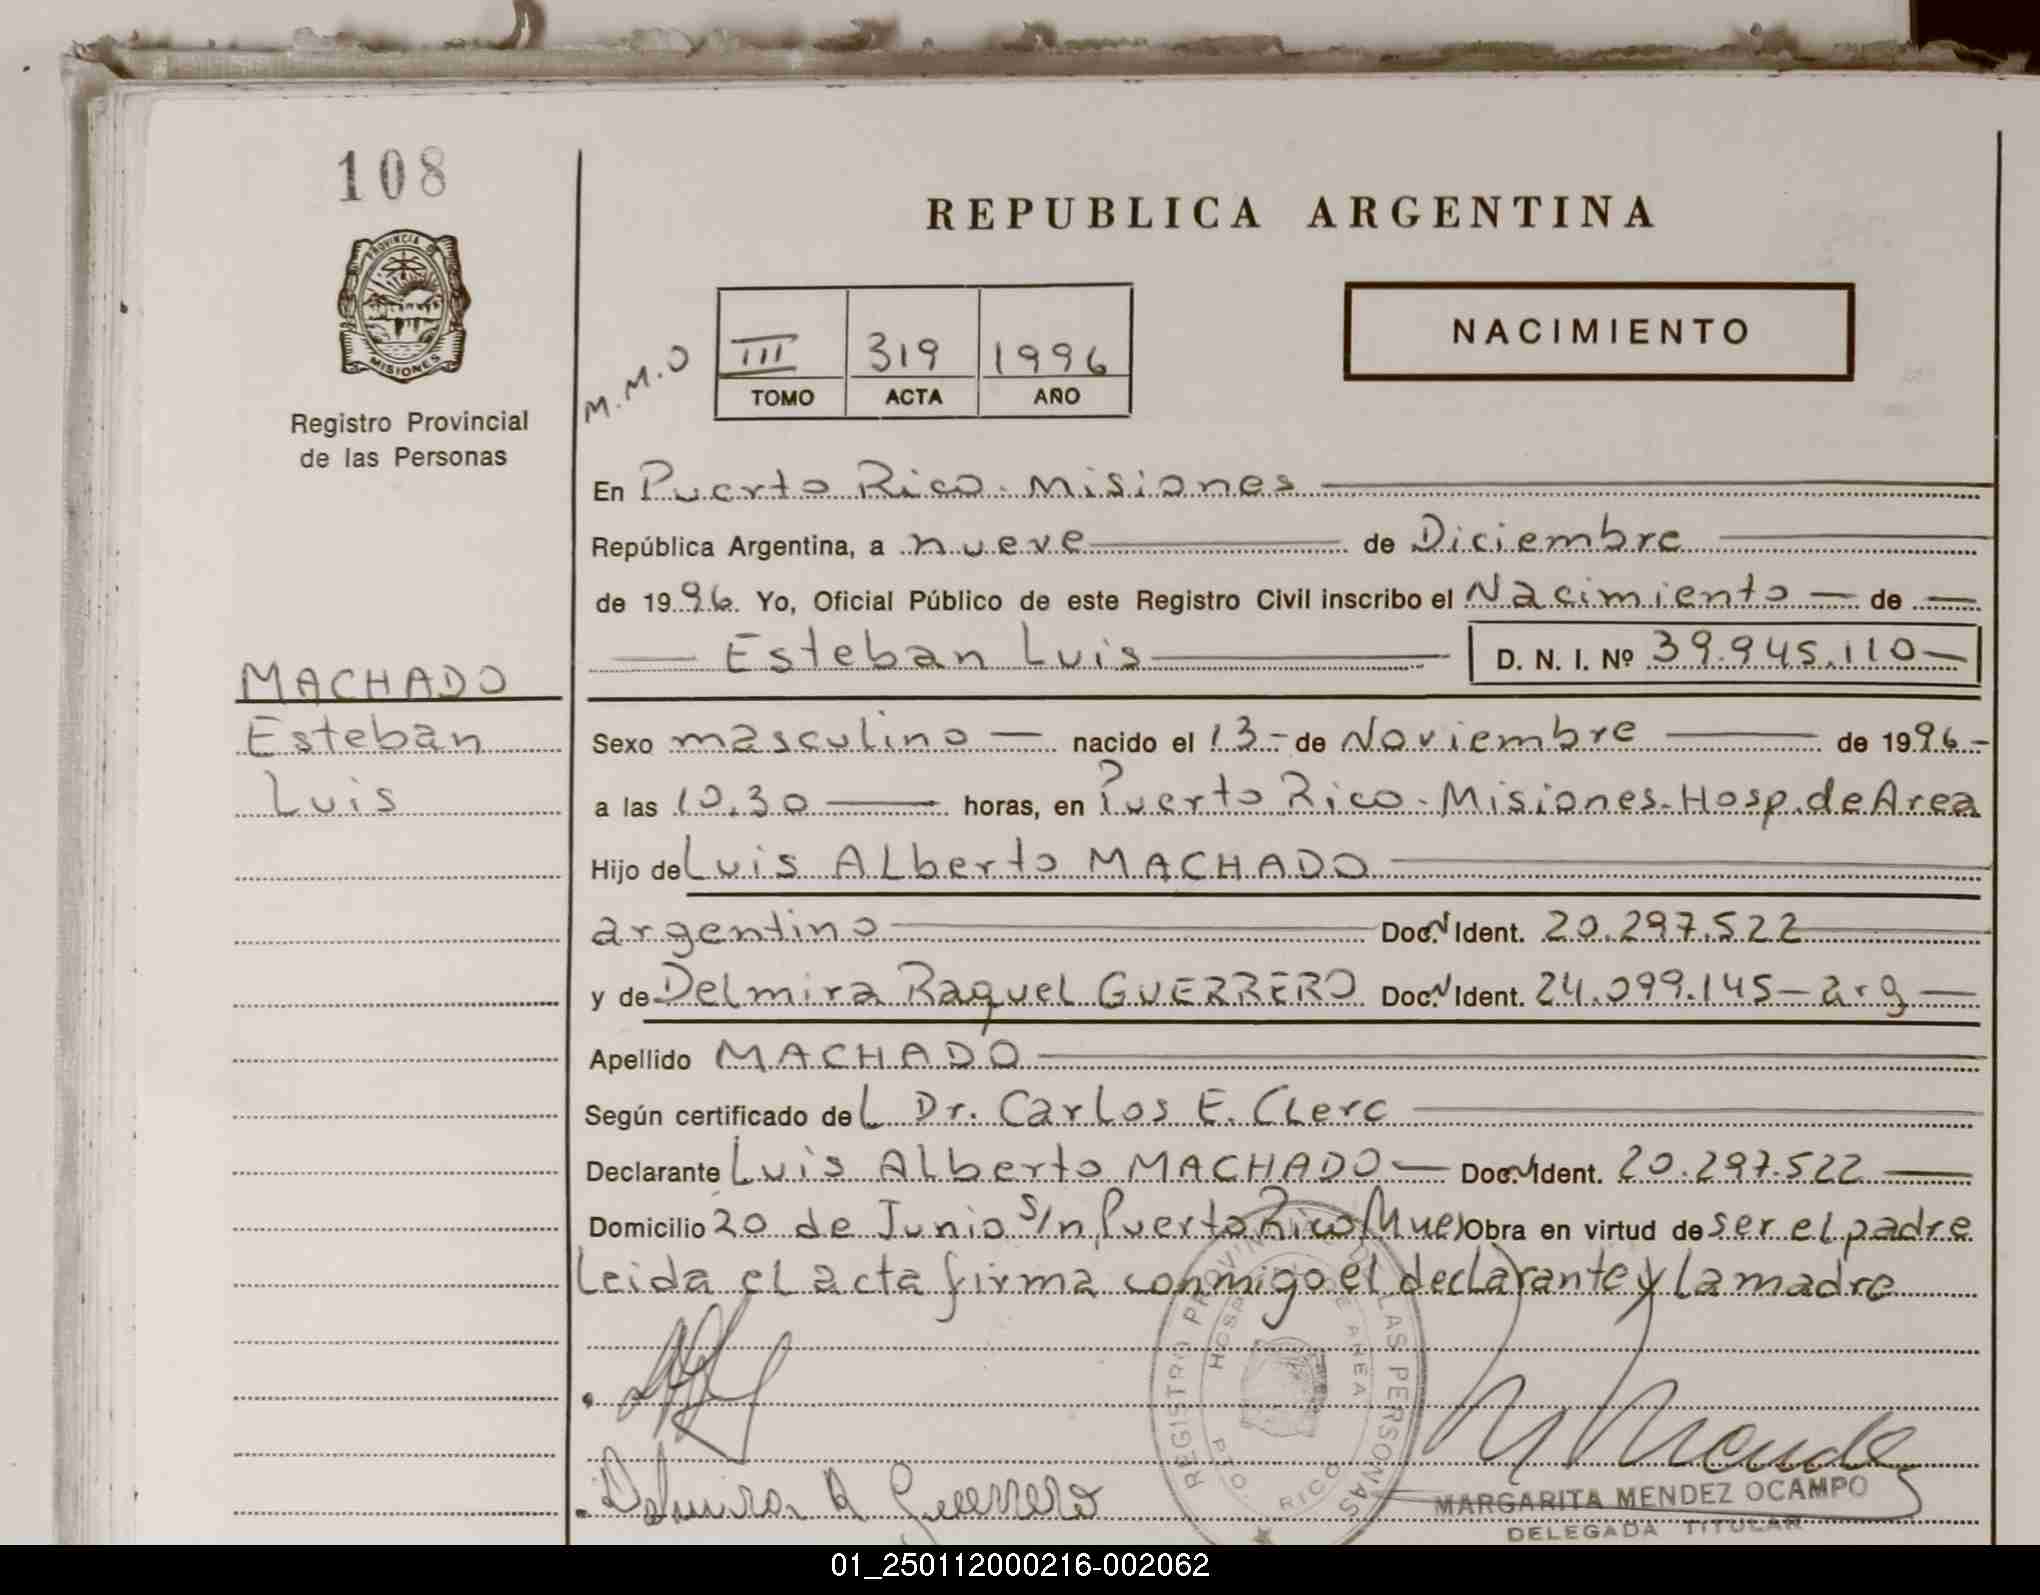 108
PROVINCIA DE
MISIONES
Registro Provincial
de las Personas
REPUBLICA ARGENTINA
M.M.O
III 319 1996
TOMO ACTA AÑO
NACIMIENTO
En Puerto Rico. Misiones
República Argentina, a nueve de Diciembre
de 1996. Yo, Oficial Público de este Registro Civil inscribo el Nacimiento de
Esteban Luis D. N. I. Nº 39.945.110
MACHADO
Esteban
Luis
Sexo masculino nacido el 13 de Noviembre de 1996
a las 10.30 horas, en Puerto Rico. Misiones. Hosp. de Area
Hijo de Luis Alberto MACHADO
argentino Doc. N Ident. 20.297.522
y de Delmira Raquel GUERRERO Doc. N Ident. 24.099.145 - arg
Apellido MACHADO
Según certificado del Dr. Carlos E. Clerc
Declarante Luis Alberto MACHADO Doc. N Ident. 20.297.522
Domicilio 20 de Junio s/n Puerto Rico Mnes Obra en virtud de ser el padre
Leida el acta firma conmigo el declarante y la madre
REGISTRO PROVINCIAL DE LAS PERSONAS
HOSP. DE AREA
PTO. RICO
Delmira R Guerrero
M Mendez
MARGARITA MENDEZ OCAMPO
DELEGADA TITULAR
01_250112000216-002062